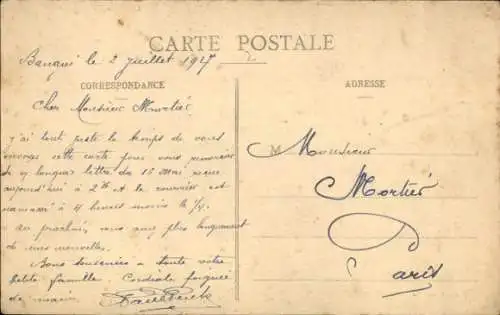 CARTE POSTALE
Bangui le 2 juillet 1927
CORRESPONDANCE
ADRESSE
Cher Monsieur Mortier
J'ai tout juste le temps de vous
envoyer cette carte pour vous remercier
de longue lettre du 15 Mai
aujourd'hui à 2h et le courrier est
à 4 heures moins le ¼.
au prochain, vous aurez plus longuement
de mes nouvelles.
Bons souvenirs à toute votre
petite famille. Cordiale poignée
de mains.
M Monsieur
Mortier
Paris